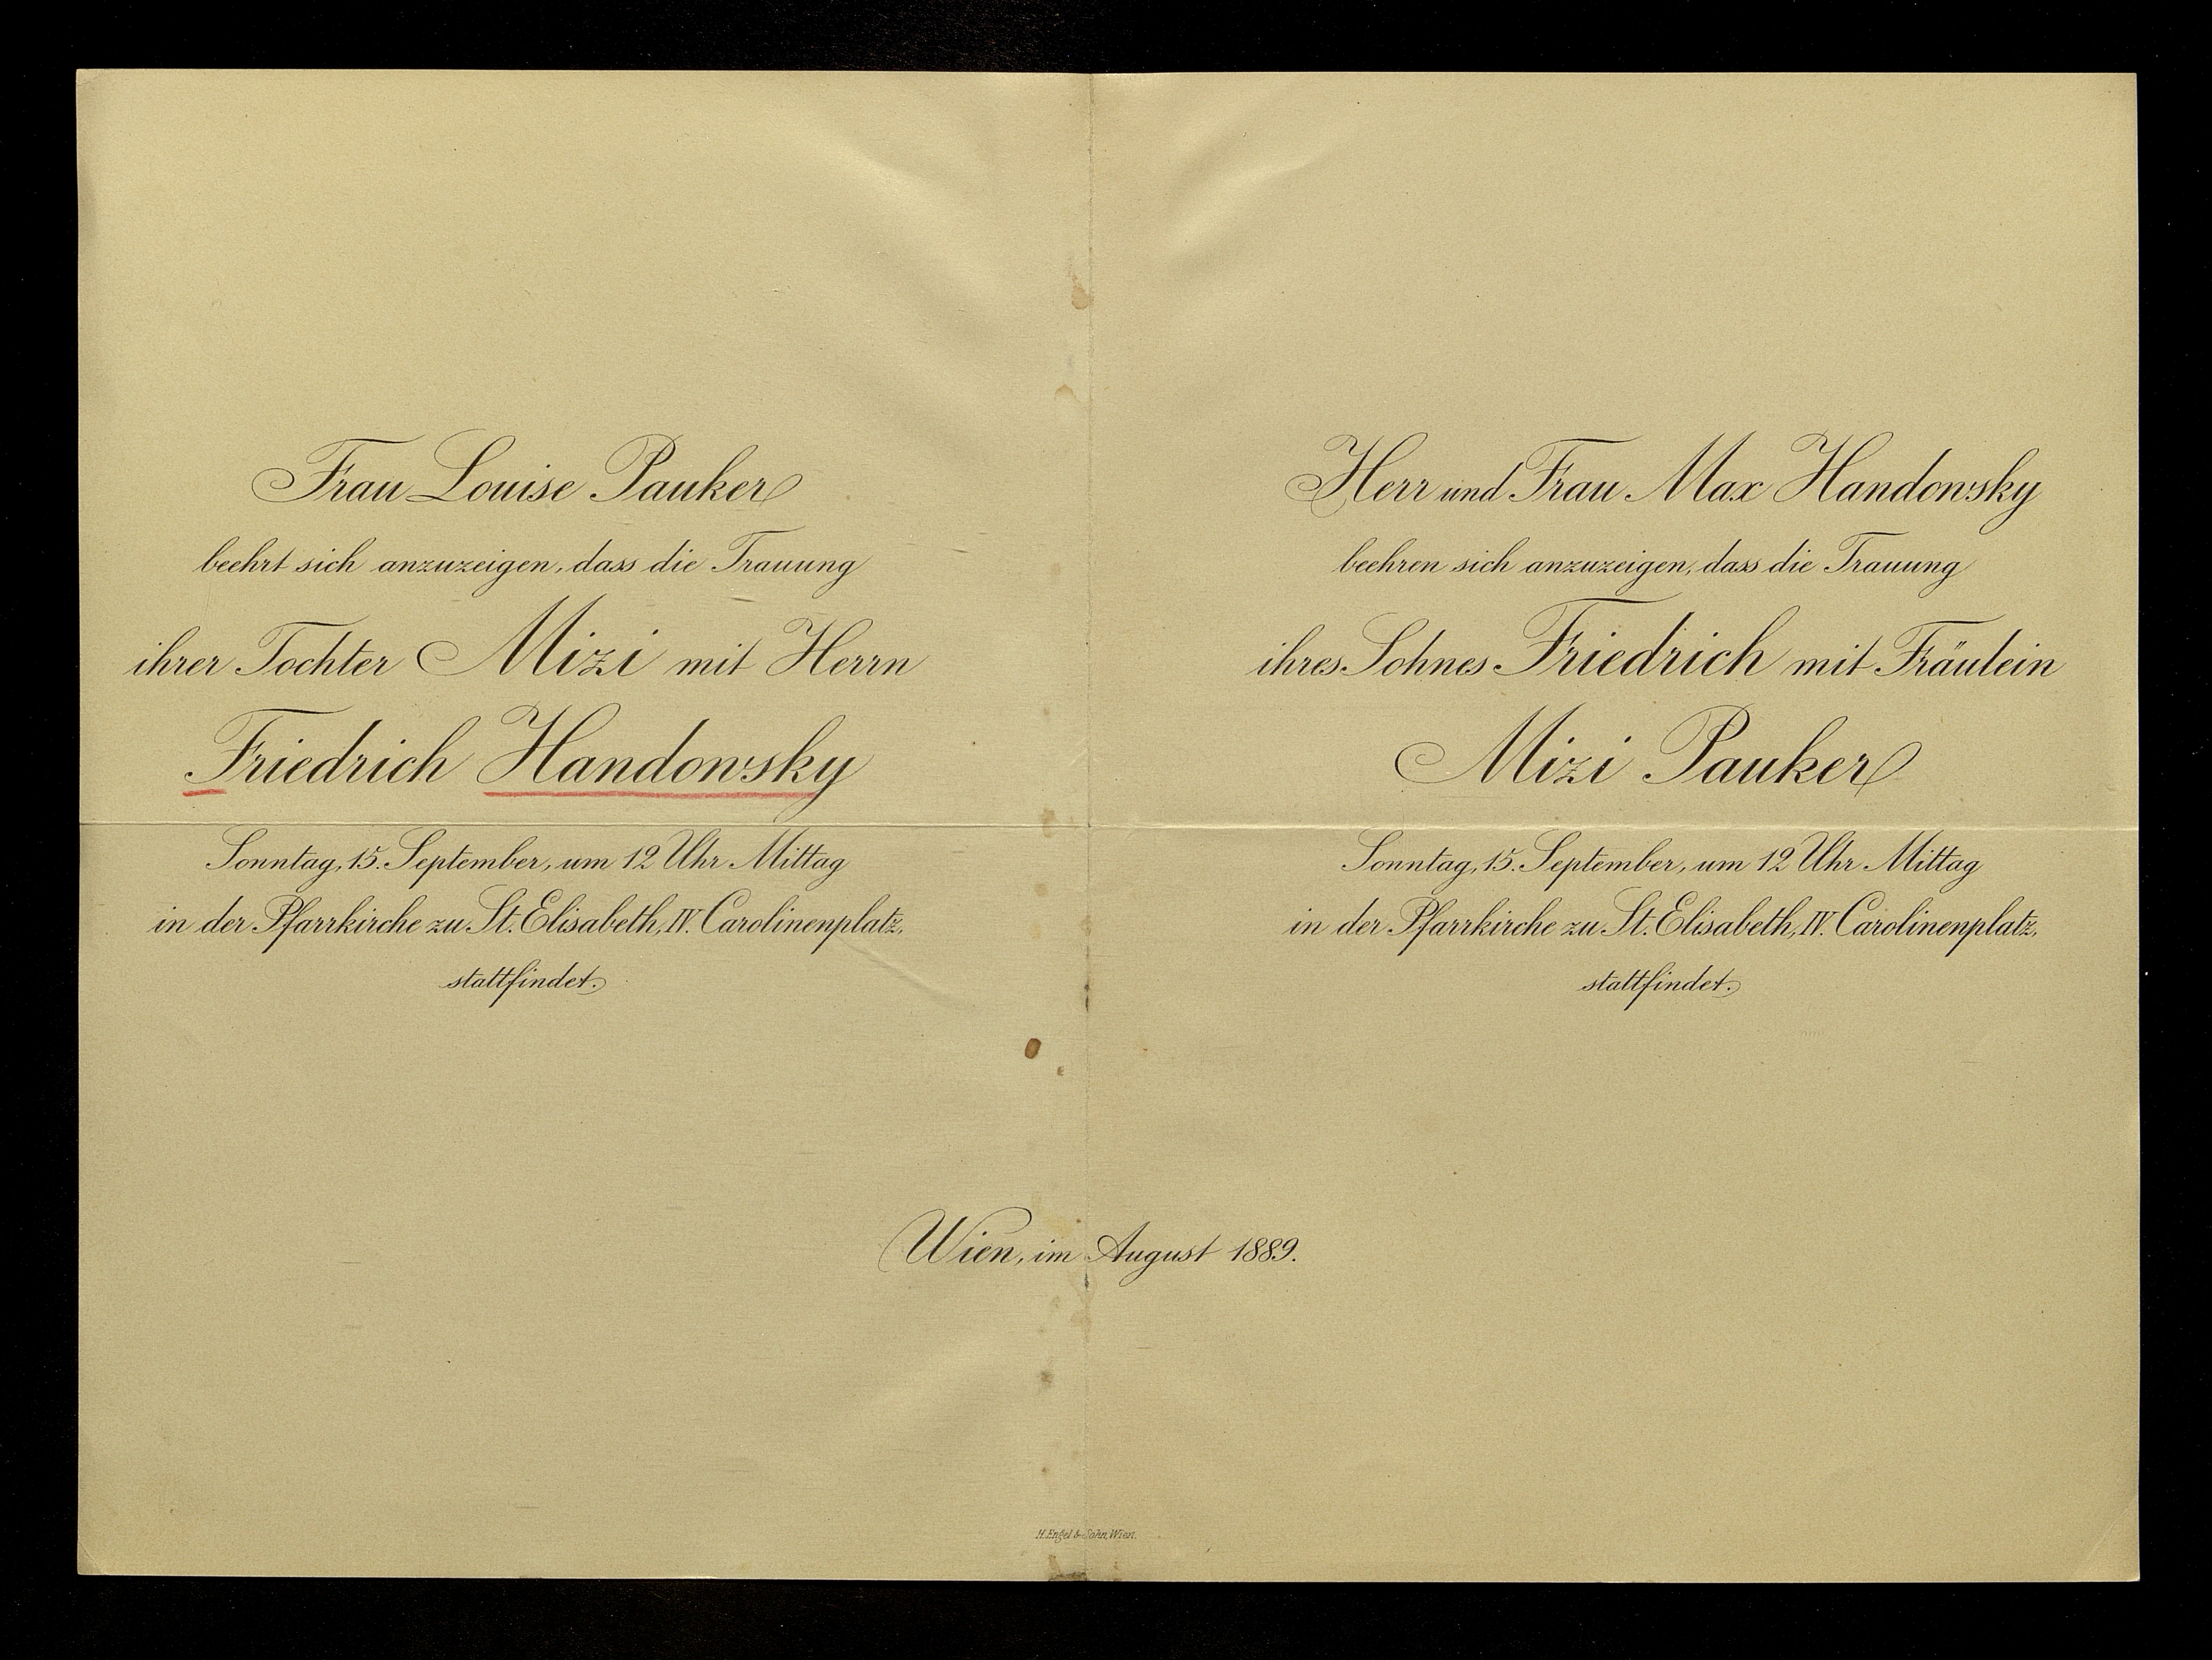 Frau Louise Pauker
beehrt sich anzuzeigen, dass die Trauung
ihrer Tochter Mizi mit Herrn
Friedrich Handowsky
Sonntag, 15. September, um 12 Uhr Mittag
in der Pfarrkirche zu St. Elisabeth, IV. Carolinenplatz,
stattfindet.
Herr und Frau Max Handowsky
beehren sich anzuzeigen, dass die Trauung
ihres Sohnes Friedrich mit Fräulein
Mizi Pauker
Sonntag, 15. September, um 12 Uhr Mittag
in der Pfarrkirche zu St. Elisabeth, IV. Carolinenplatz,
stattfindet.
Wien, im August 1889.
H. Engel & Sohn, Wien.